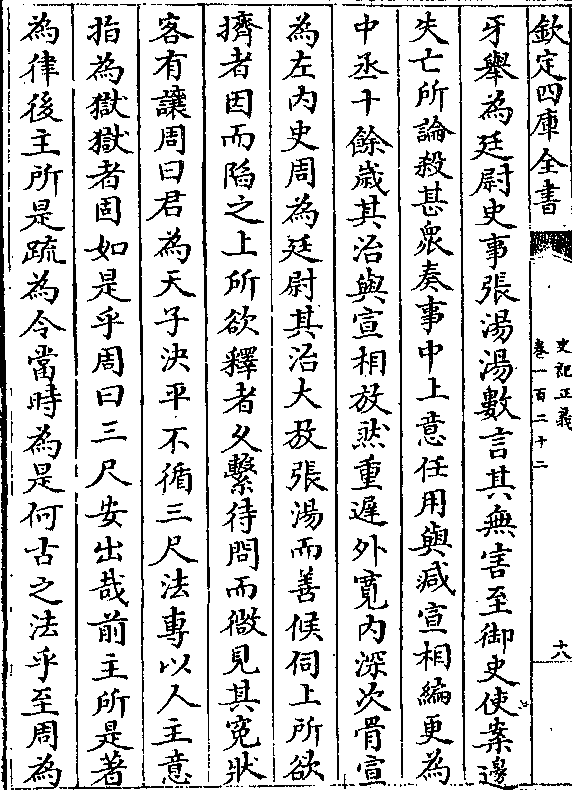 欽定四庫全書
史記正義
卷一百二十二
十八
牙舉為廷尉史事張湯湯數言其無害至御史使案邊
失亡所論殺甚衆奏事中上意任用與减宣相編更為
中丞十餘歲其治與宣相放然重遲外寛内深次骨宣
為左内史周為廷尉其治大放張湯而善候伺上所欲
擠者因而陷之上所欲釋者久繫待問而微見其寃狀
客有讓周曰君為天子決平不循三尺法専以人主意
指為獄獄者固如是乎周曰三尺安出哉前主所是著
為律後主所是疏為令當時為是何古之法乎至周為